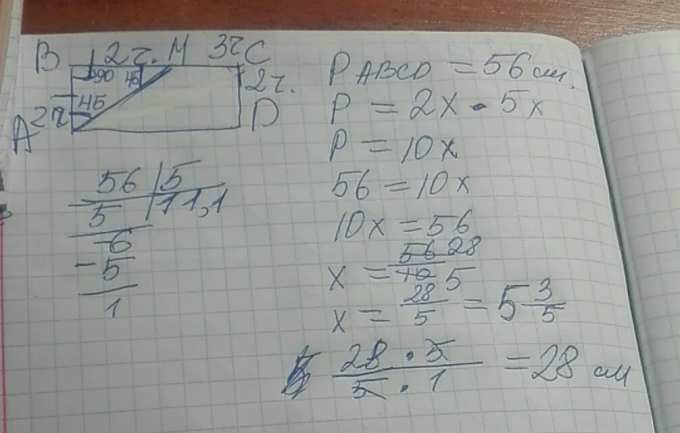 B 2ч. M 3ч C
90 45
2ч.
45
A 2ч D
56 | 5
5 | 11,1
-6
- 5
1
P ABCD = 56 см.
P = 2x · 5x
P = 10x
56 = 10x
10x = 56
x = 56 28 / 10 5
x = 28/5 = 5 3/5
28 · 5 / 5 · 1 = 28 см